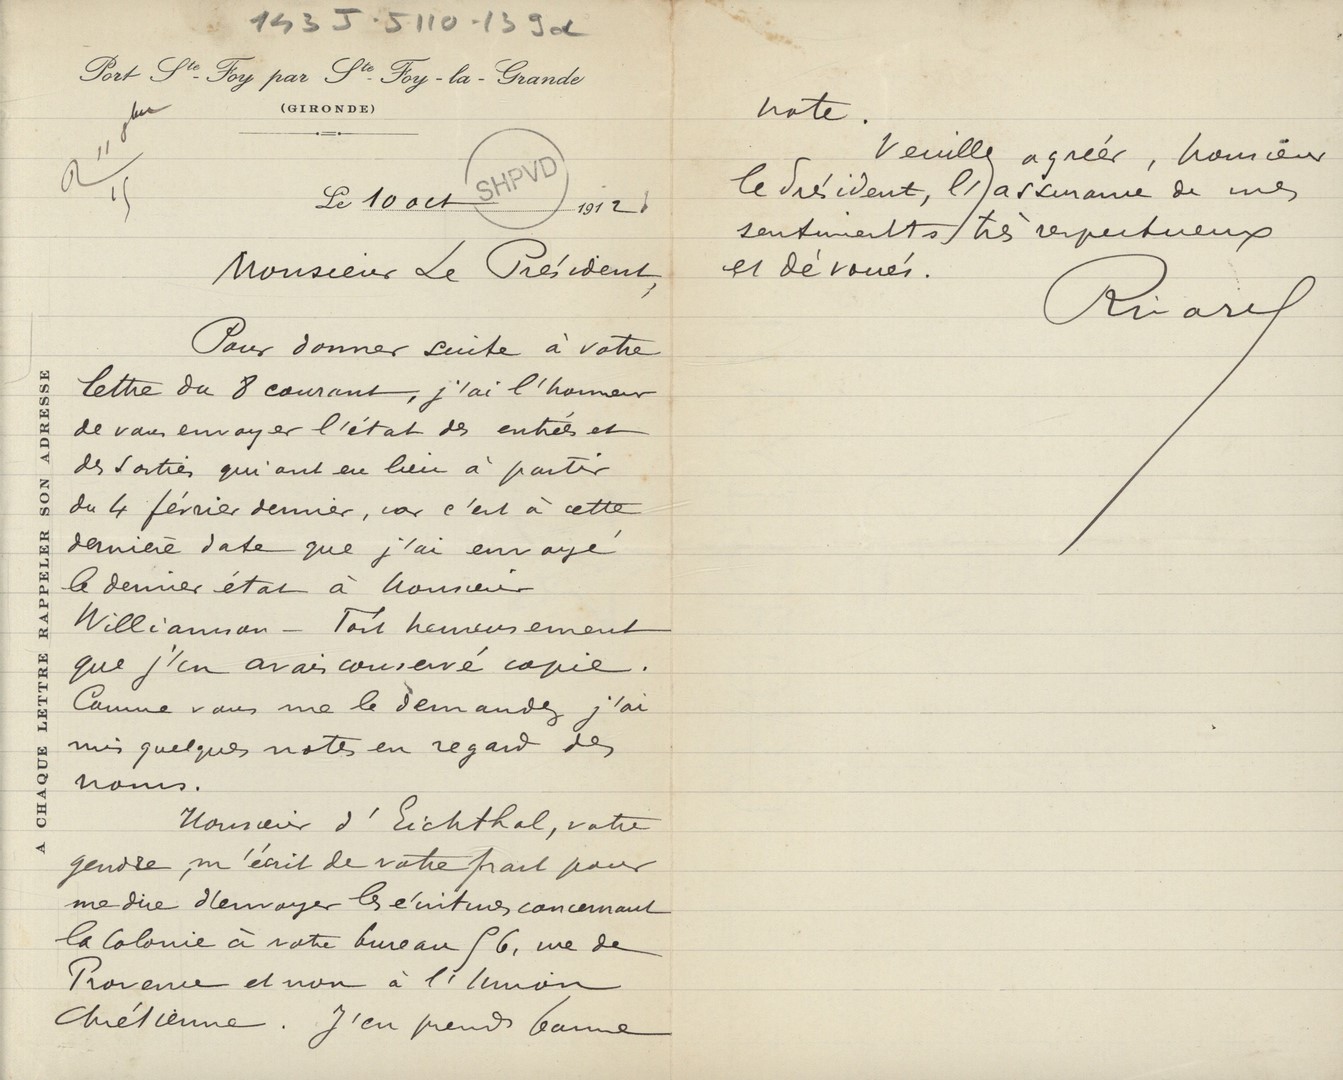 143 J. 5110.139d
Port Ste-Foy par Ste-Foy-la-Grande
(GIRONDE)
R 11 9bre
15
SHPVD
Le 10 oct 1912
A CHAQUE LETTRE RAPPELER SON ADRESSE
Monsieur Le Président,
Pour donner suite à votre
lettre du 8 courant, j'ai l'honneur
de vous envoyer l'état des entrées et
des sorties qui ont eu lieu à partir
du 4 février dernier, car c'est à cette
dernière date que j'ai envoyé
le dernier état à Monsieur
Williamson - Fort heureusement
que j'en avais conservé copie.
Comme vous me le demandez j'ai
mis quelques notes en regard des
noms.
Monsieur d'Eichthal, votre
gendre, m'écrit de votre part pour
me dire d'envoyer les écritures concernant
la Colonie à votre bureau 56, rue de
Provence et non à l'Union
Chrétienne. J'en prends bonne
note.
Veuillez agréer, Monsieur
le Président, l'assurance de mes
sentiments très respectueux
et dévoués.